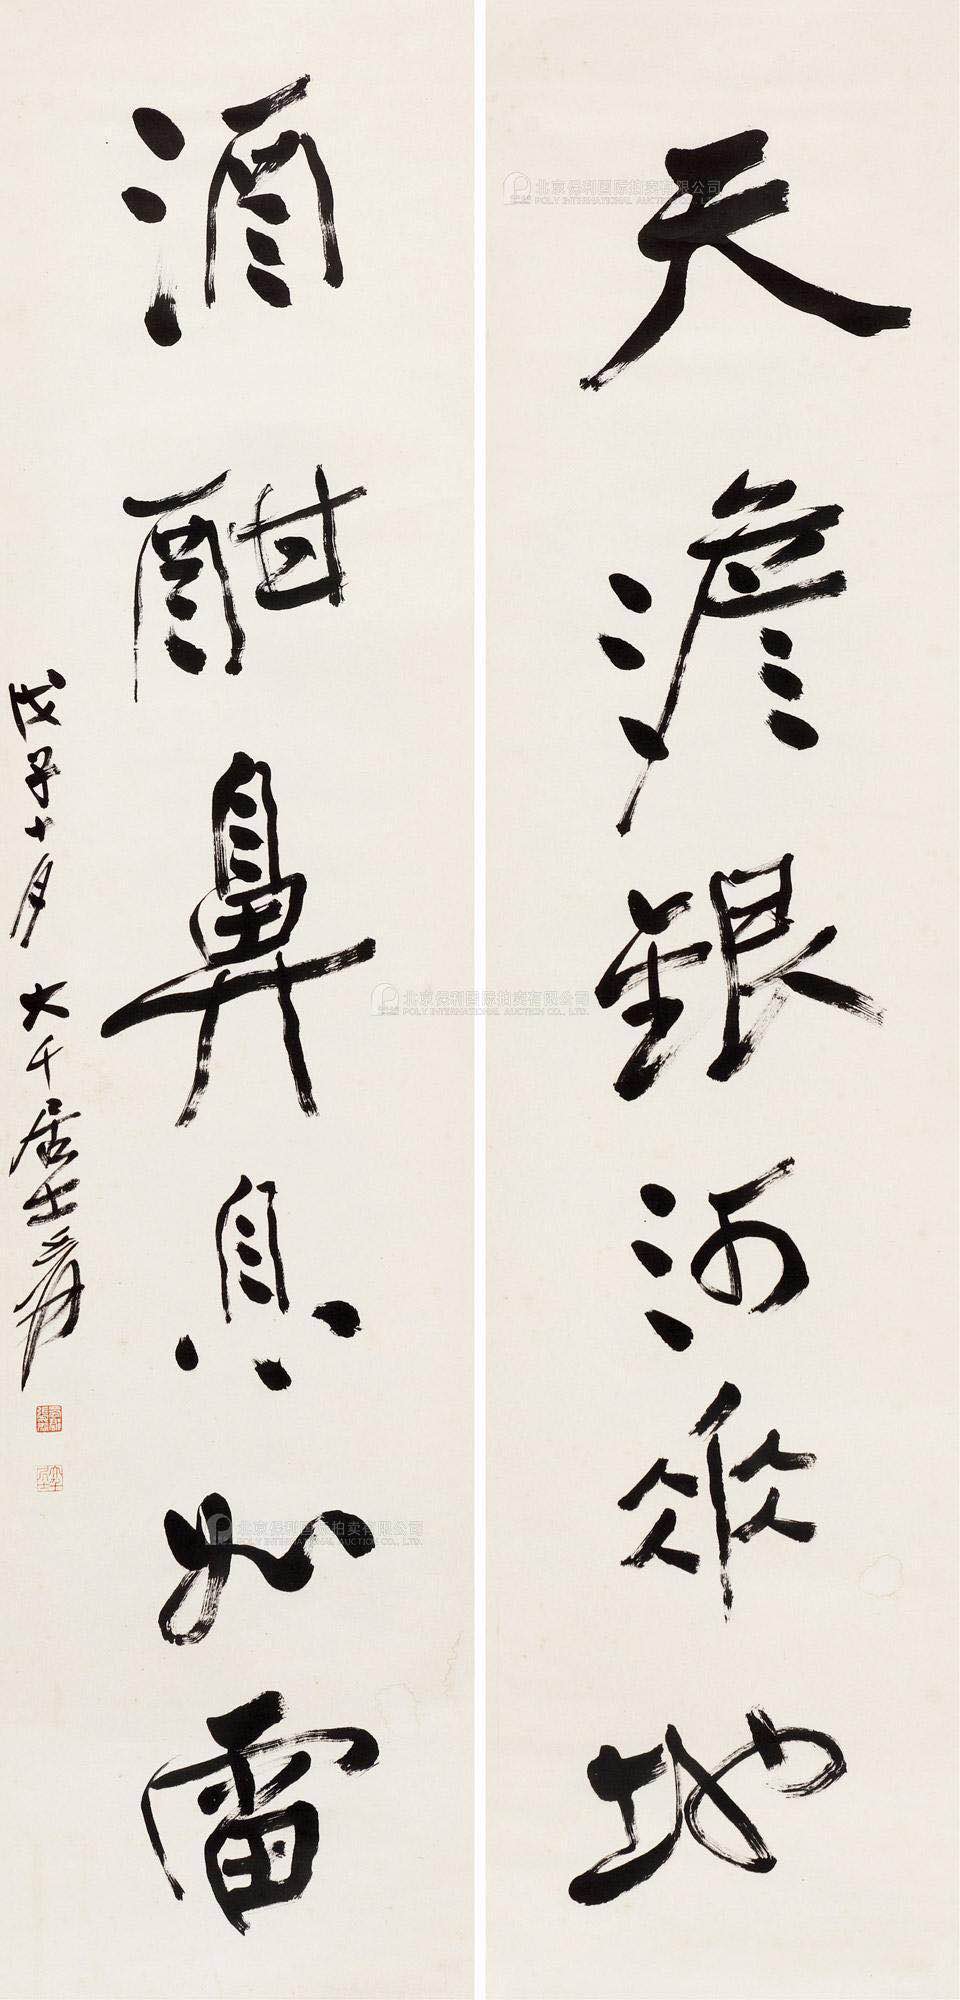 天澹銀河垂地
酒酣鼻息如雷
戊子十月 大千居士爰
北京保利国际拍卖有限公司
POLY INTERNATIONAL AUCTION CO., LTD.
北京保利国际拍卖有限公司
POLY INTERNATIONAL AUCTION CO., LTD.
北京保利国际拍卖有限公司
POLY INTERNATIONAL AUCTION CO., LTD.